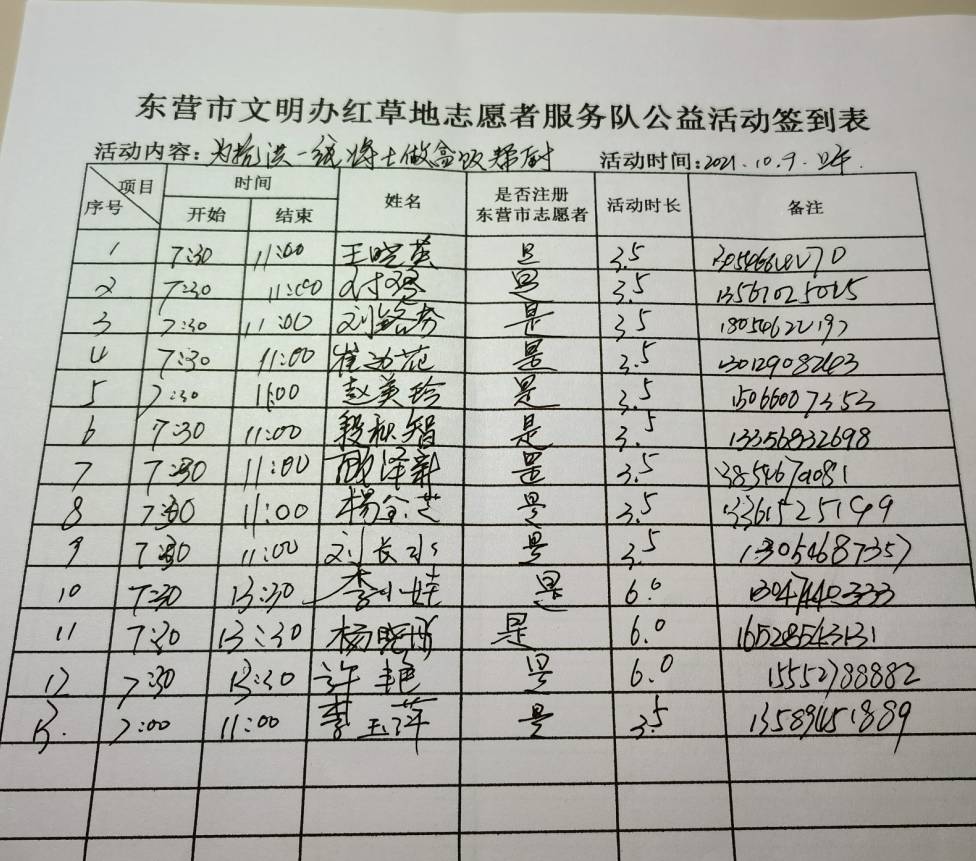 东营市文明办红草地志愿者服务队公益活动签到表
活动内容：为抗洪一线将士做盒饭帮厨 活动时间：2021.10.9.
项目 序号 时间 姓名 是否注册 东营市志愿者 活动时长 备注
开始 结束
1 7:30 11:00 王晓英 是 3.5
2 7:30 11:00 是 3.5 13561025025
3 7:30 11:00 是 3.5
4 7:30 11:00 是 3.5
5 7:30 11:00 赵美珍 是 3.5 15066007353
6 7:30 11:00 段积智 是 3.5 13356832698
7 7:30 11:00 是 3.5
8 7:30 11:00 杨金芝 是 3.5 13361525199
9 7:30 11:00 刘长水 是 3.5 13054687357
10 7:30 13:30 李小娃 是 6.0 13047440333
11 7:30 13:30 杨晓彤 是 6.0 16528543131
12 7:30 13:30 许艳 是 6.0 15552788882
13. 7:00 11:00 李玉萍 是 3.5 13589451889